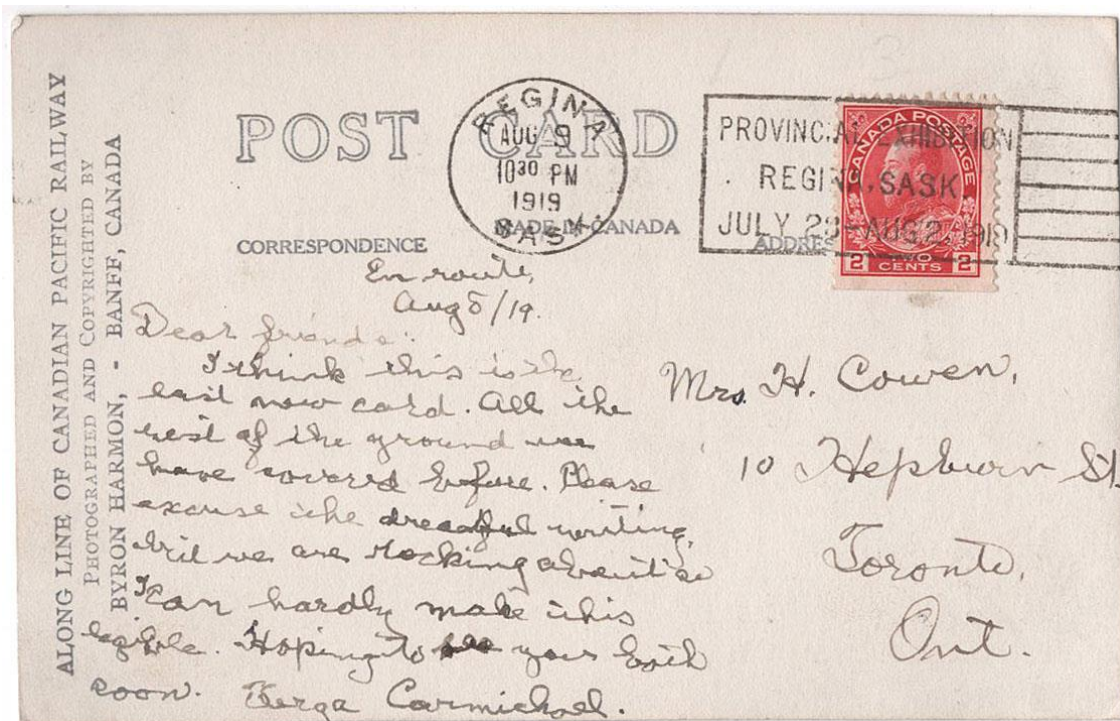 ALONG LINE OF CANADIAN PACIFIC RAILWAY
PHOTOGRAPHED AND COPYRIGHTED BY
BYRON HARMON, - BANFF, CANADA
POST CARD
MADE IN CANADA
CORRESPONDENCE
ADDRESS
REGINA
AUG 9
10 30 PM
1919
SASK.
PROVINCIAL EXHIBITION
REGINA, SASK
JULY 28-AUG 2, 1919
CANADA POSTAGE
2 TWO CENTS 2
En route,
Aug 8/19.
Dear friends:
I think this is the
last new card. All the
rest of the ground we
have covered before. Please
excuse the dreadful writing,
but we are rocking about so
I can hardly make this
legible. Hoping to see you both
soon. Carmichael.
Mrs. H. Cowen,
10 Hepburn St.
Toronto,
Ont.